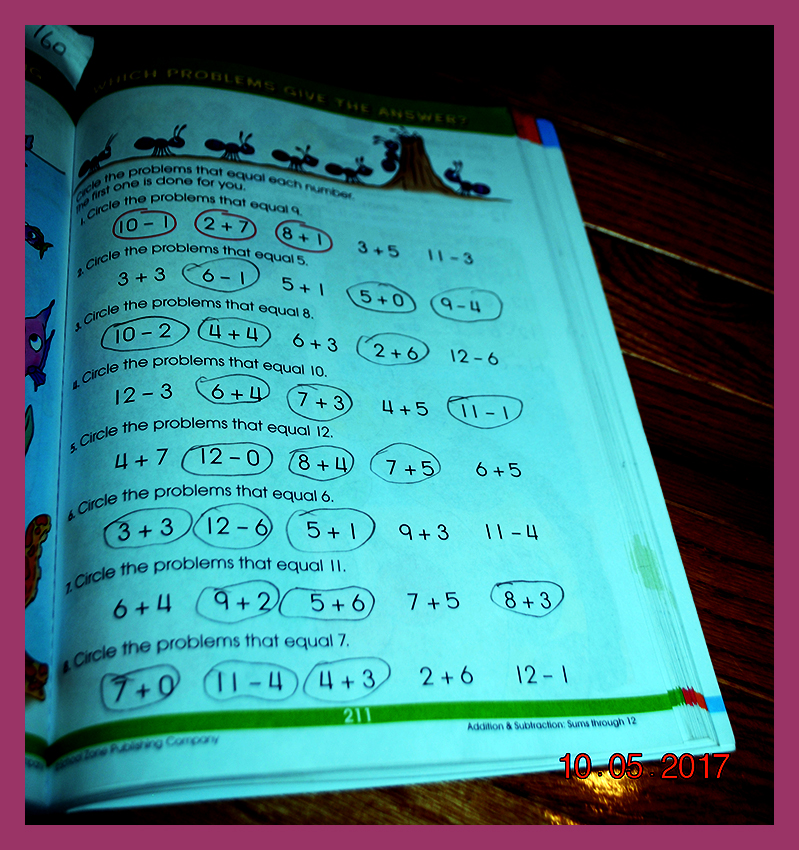 160
WHICH PROBLEMS GIVE THE ANSWER?
Circle the problems that equal each number.
The first one is done for you.
1. Circle the problems that equal 9.
10 – 1 2 + 7 8 + 1 3 + 5 11 – 3
2. Circle the problems that equal 5.
3 + 3 6 – 1 5 + 1 5 + 0 9 – 4
3. Circle the problems that equal 8.
10 – 2 4 + 4 6 + 3 2 + 6 12 – 6
4. Circle the problems that equal 10.
12 – 3 6 + 4 7 + 3 4 + 5 11 – 1
5. Circle the problems that equal 12.
4 + 7 12 – 0 8 + 4 7 + 5 6 + 5
6. Circle the problems that equal 6.
3 + 3 12 – 6 5 + 1 9 + 3 11 – 4
7. Circle the problems that equal 11.
6 + 4 9 + 2 5 + 6 7 + 5 8 + 3
8. Circle the problems that equal 7.
7 + 0 11 – 4 4 + 3 2 + 6 12 – 1
211
School Zone Publishing Company
Addition & Subtraction: Sums through 12
10.05.2017